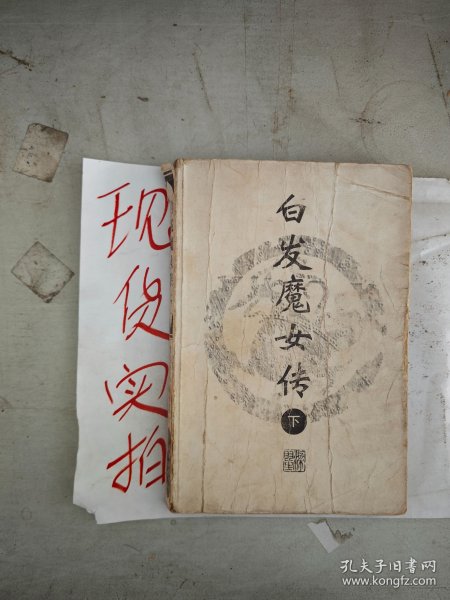 现货实拍
白发魔女传
下
孔夫子旧书网
www.kongfz.com